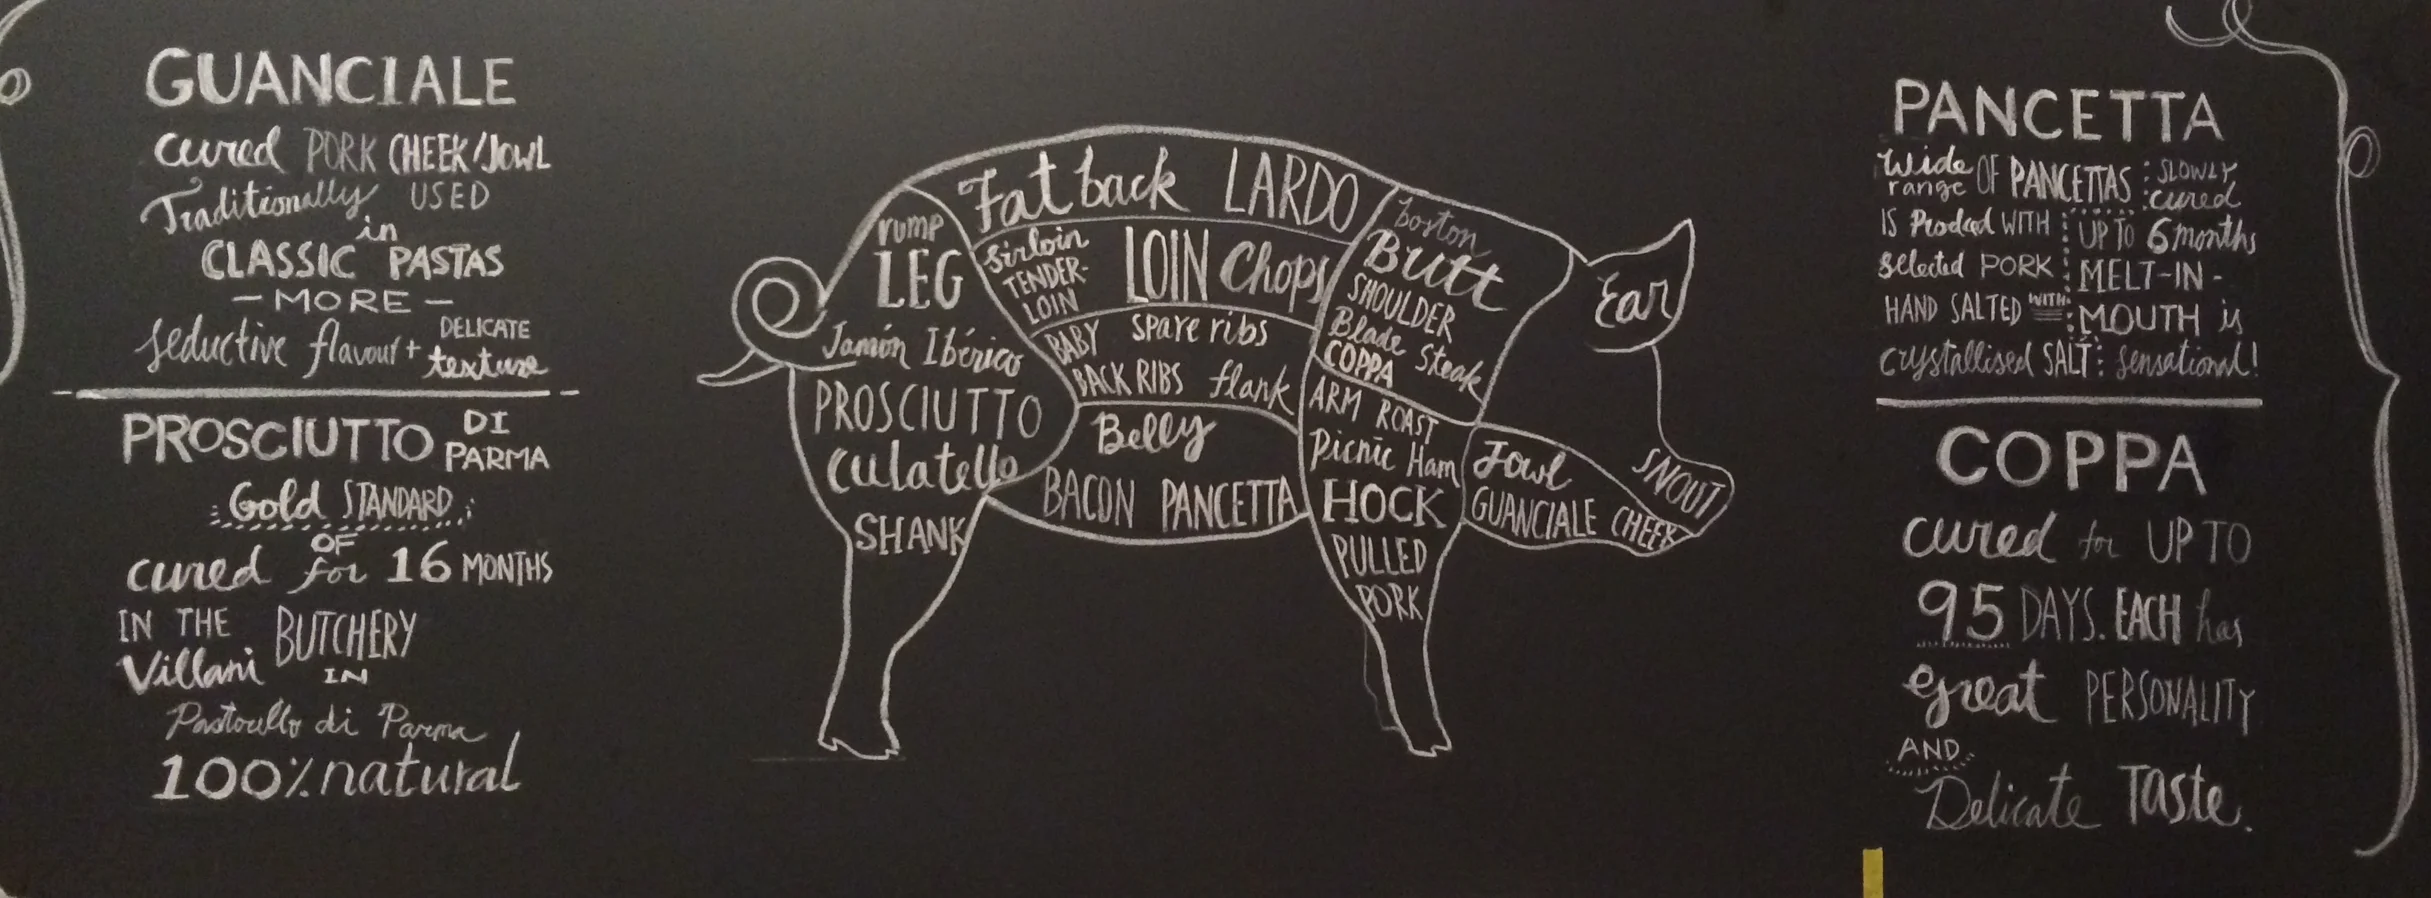 GUANCIALE
cured PORK CHEEK/JOWL
Traditionally USED
in
CLASSIC PASTAS
- MORE -
seductive flavour + DELICATE texture
PROSCIUTTO DI PARMA
Gold STANDARD
OF
cured for 16 MONTHS
IN THE BUTCHERY
Villani IN
Pastorello di Parma
100% natural
Fat back LARDO
rump
LEG
Jamón Ibérico
PROSCIUTTO
culatello
SHANK
Sirloin
TENDER-
LOIN
LOIN Chops
BABY spare ribs
BACK RIBS flank
Belly
BACON PANCETTA
boston
Butt
SHOULDER
Blade Steak
COPPA
ARM ROAST
Picnic Ham
HOCK
PULLED
PORK
Ear
Jowl
GUANCIALE CHEEK
SNOUT
PANCETTA
Wide range OF PANCETTAS
IS Prodced WITH
selected PORK
HAND SALTED WITH
crystallised SALT
SLOWLY
cured
UP TO 6 months
MELT-IN-
MOUTH is
sensational!
COPPA
cured for UP TO
95 DAYS. EACH has
great PERSONALITY
AND
Delicate Taste.